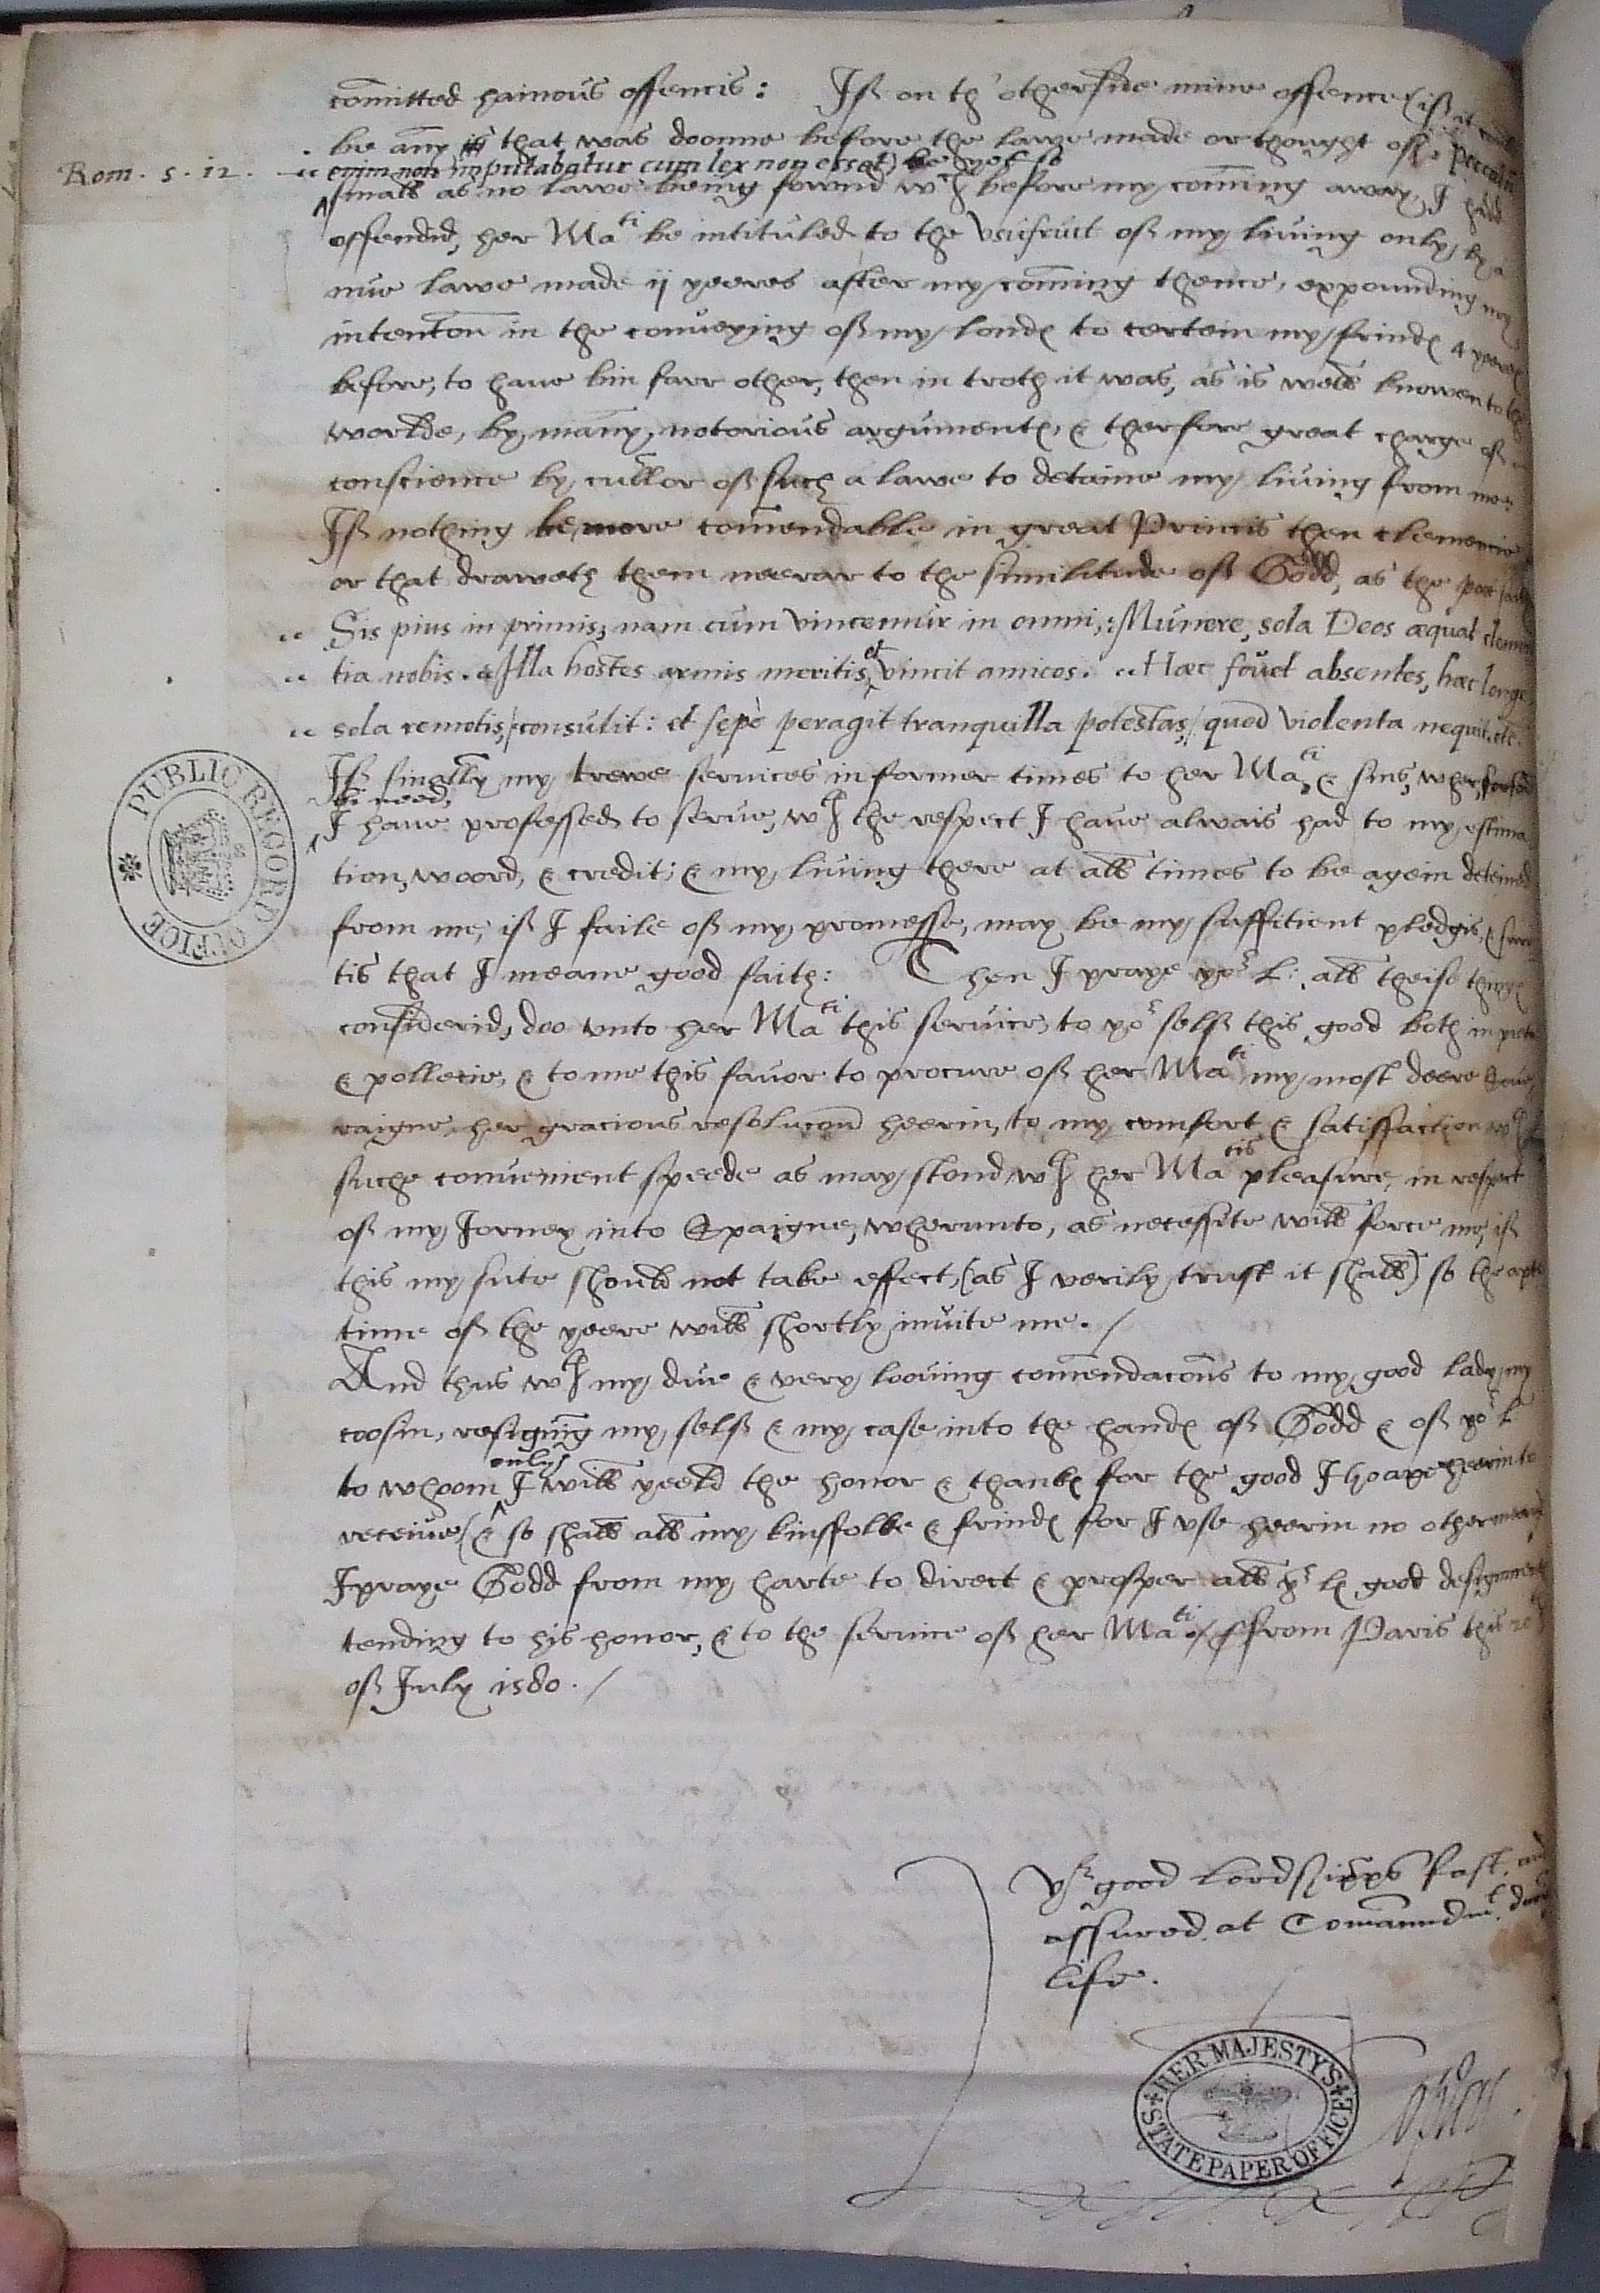 comitted hainous offencis: If on th'otherside mine offence (if it
be any that was doonne before the lawe made or thought off: peccatū
Rom. 5. 12. enim non imputabatur cum lex non esset) be yet so
small as no lawe being fownd wch before my coming away, I hadd
offendid, her Mati be intituled to the vsufruit of my living only, by a
nue lawe made ij yeeres after my coming thence, expounding my
intenton in the conveying of my londes to certein my frindes 4 yeeres
before, to haue bin farr other, then in troth it was, as is well knowen to the
worlde, by many notorious argumentes, & therfore great charge of
conscience by cullor of such a lawe to detaine my living from me:
If nothing be more comendable in great Princis then clemencie
or that draweth them neerar to the similitude of Godd, as the poet
Sis pius in primis, nam cum vincemur in omni,: Munere, sola Deos æquat clemen
tia nobis. Illa hostes armis meritis et vincit amicos. Hæc fouet absentes, hæc longe
sola remotis, consulit: et sępè peragit tranquilla potestas, quod violenta nequit. etc.
If finally my trewe services in former times to her Mati, & sins, wher,
bi need,
I haue professed to serue, wth the respect I haue alwais had to my estima
tion, woord, & credit; & my living there at all times to be agein deteined
from me, if I faile of my promesse, may be my suffitient pledgis, &
tis that I meane good faith: Then I praye yor L: all theise thinges
considerid, doo vnto her Mati this service, to yor self this good both in
& pollecie, & to me this favor to procure of her Mati my most deere Soue
raigne, her gracious resolucon heerin, to my comfort & satisfaction wth
suche convenient speede as may stond wth her Matis pleasure, in respect
of my Jorney into Spaigne, wherunto, as necessite will force me, if
this my sute should not take effect, (as I verily trust it shall) so the apte
time of the yeere will shortly invite me. /
And thus wth my due & very looving comendacons to my good lady, my
coosin, resigning my self & my case into the handes of Godd & of yor L
only
to whoom I will yeeld the honor & thankes for the good I hoape heerin to
receiue, (& so shall all my kinsfolke & frindes for I vse heerin no other
I praye Godd from my harte to direct & prosper all yr Ls good designmentes
tending to his honor, & to the service of her Mati ./ ffrom Paris this 20
of July 1580. /
Yr good Lordshipps fast, and
assured, at Comaundmt
life.
PUBLIC RECORD OFFICE
HER MAJESTY'S STATE PAPER OFFICE